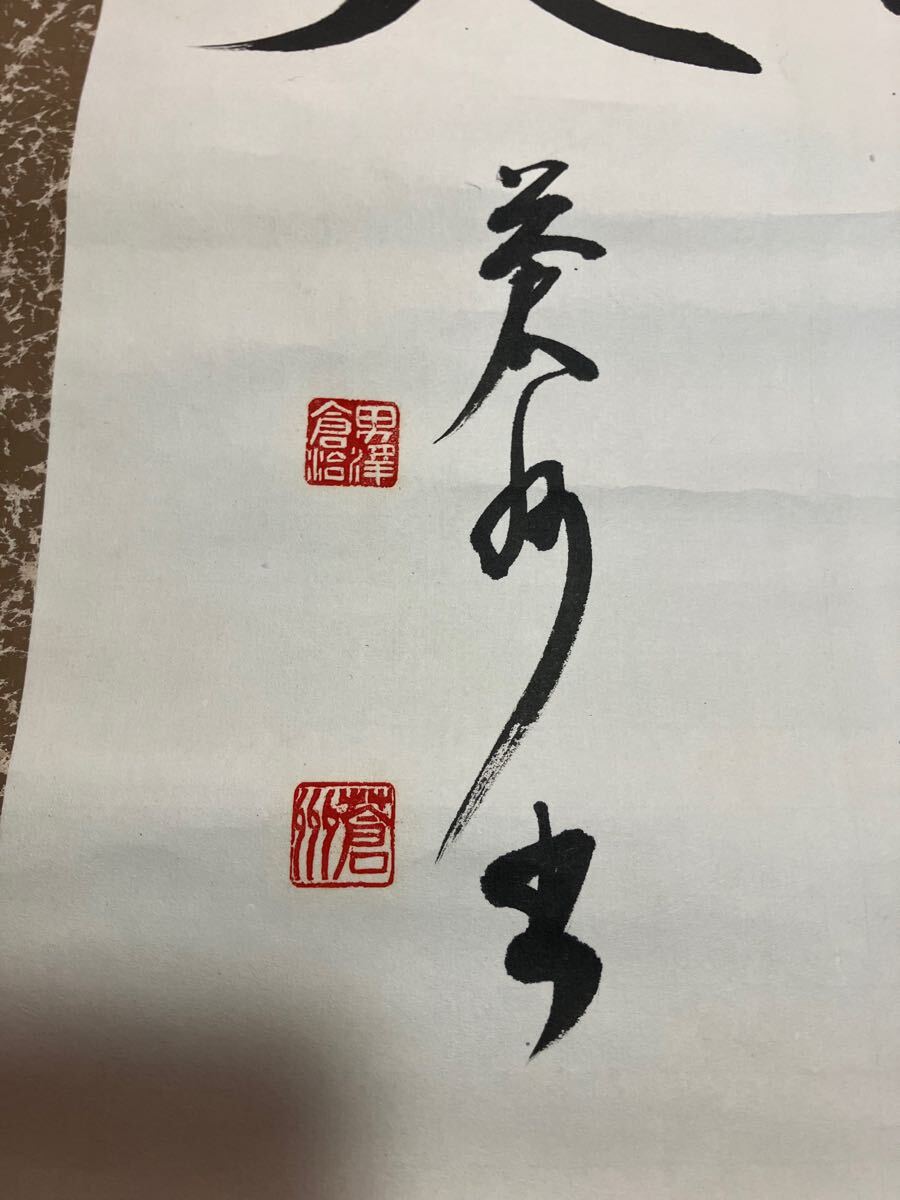 蒼州書
男澤
倉治
蒼州